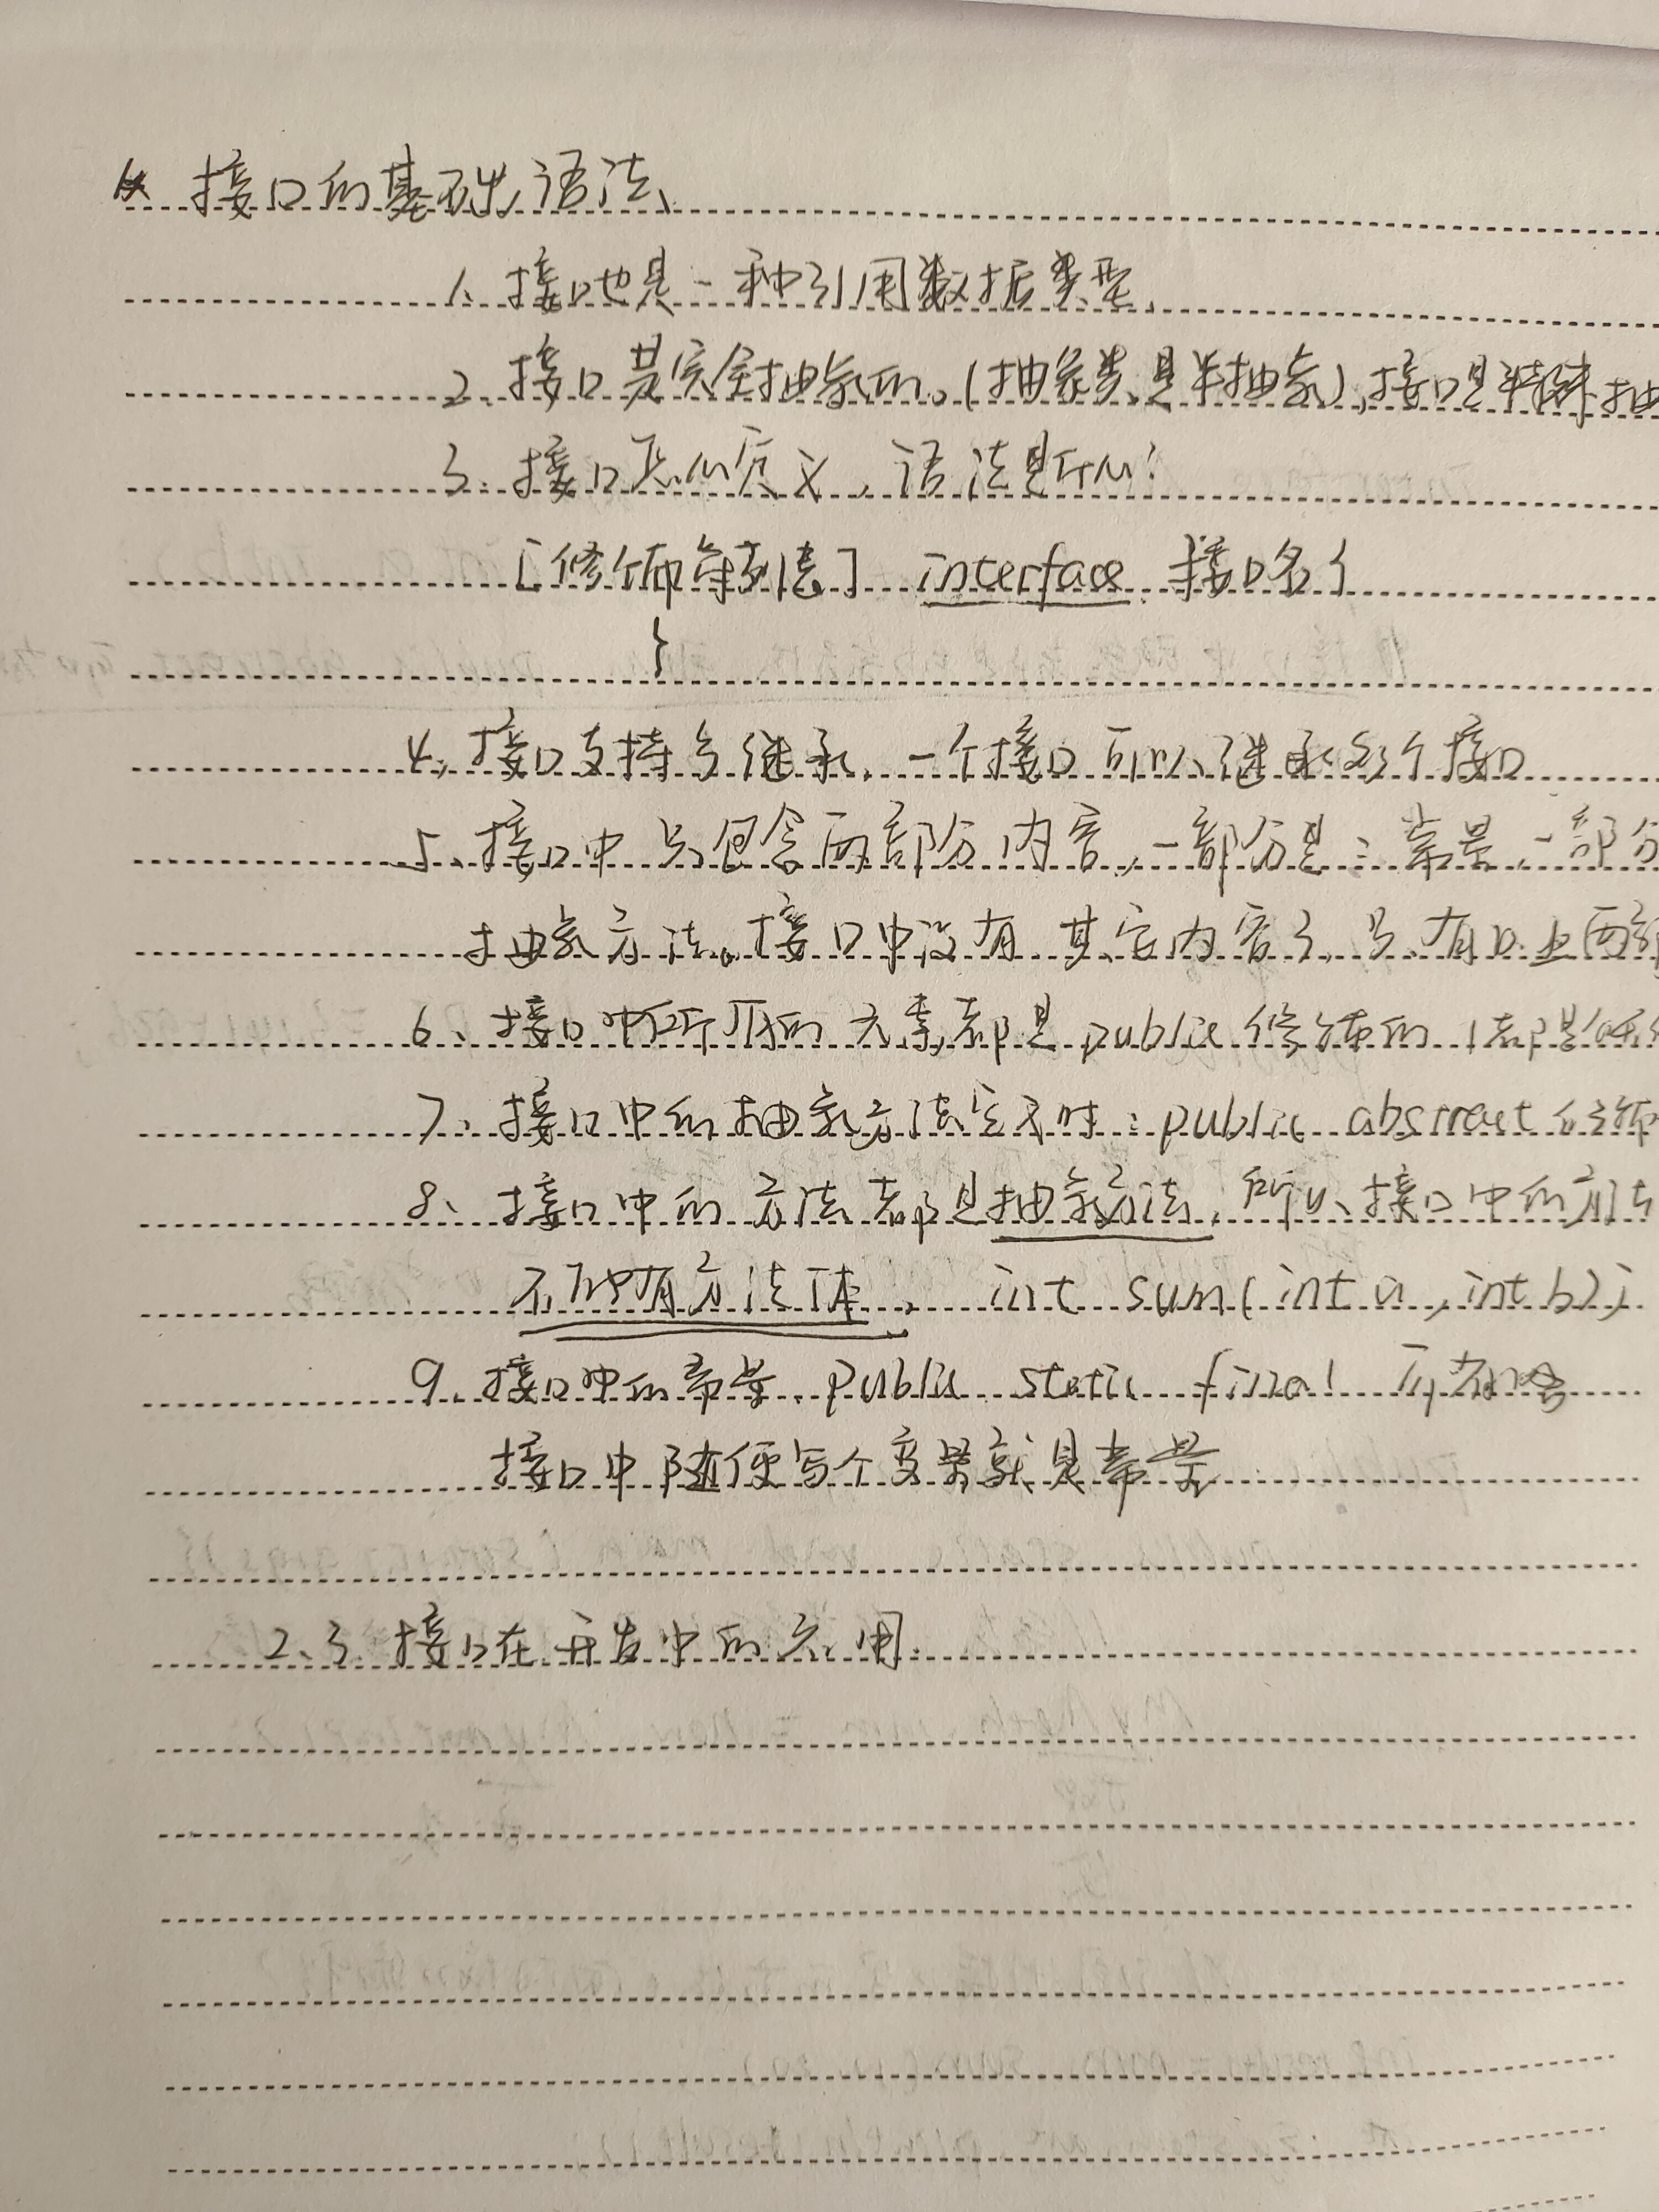 接口的基础语法
1、接口也是一种引用数据类型。
2、接口是完全抽象的。(抽象类是半抽象),接口是特殊抽
3、接口怎么定义,语法是什么?
[修饰符列表] interface 接口名{
}
4、接口支持多继承,一个接口可以继承多个接口
5、接口中只包含两部分内容,一部分是:常量,一部分
抽象方法。接口中没有其它内容了,只有以上两部
6、接口中所有的元素都是public修饰的(都是
7、接口中的抽象方法定义时:public abstract修饰
8、接口中的方法都是抽象方法,所以接口中的方法
不能有方法体, int sum(int a, int b);
9、接口中的常量 public static final 可省略
接口中随便写个变量就是常量
2、3、接口在开发中的作用.